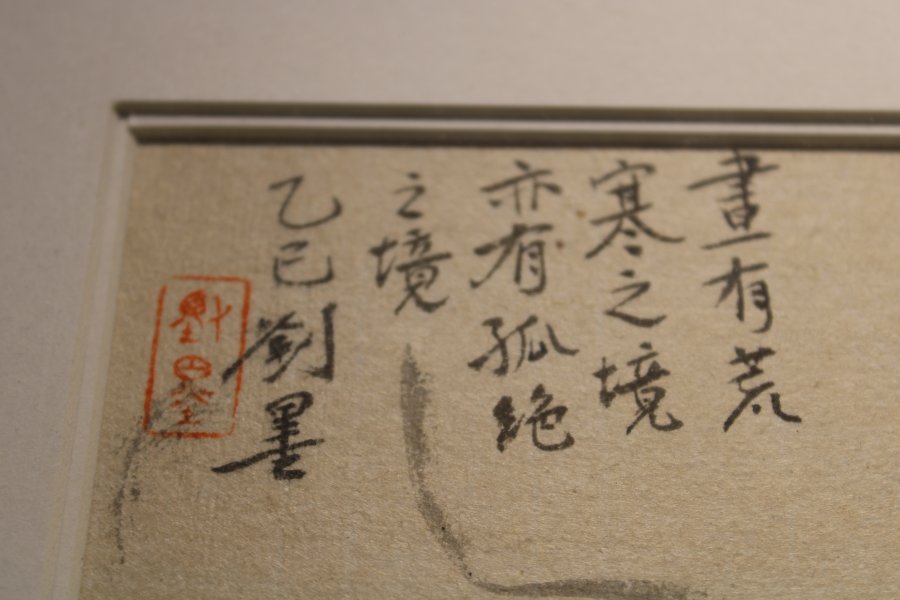 畫有荒
寒之境
亦有孤絕
之境
乙巳劉墨
劉墨